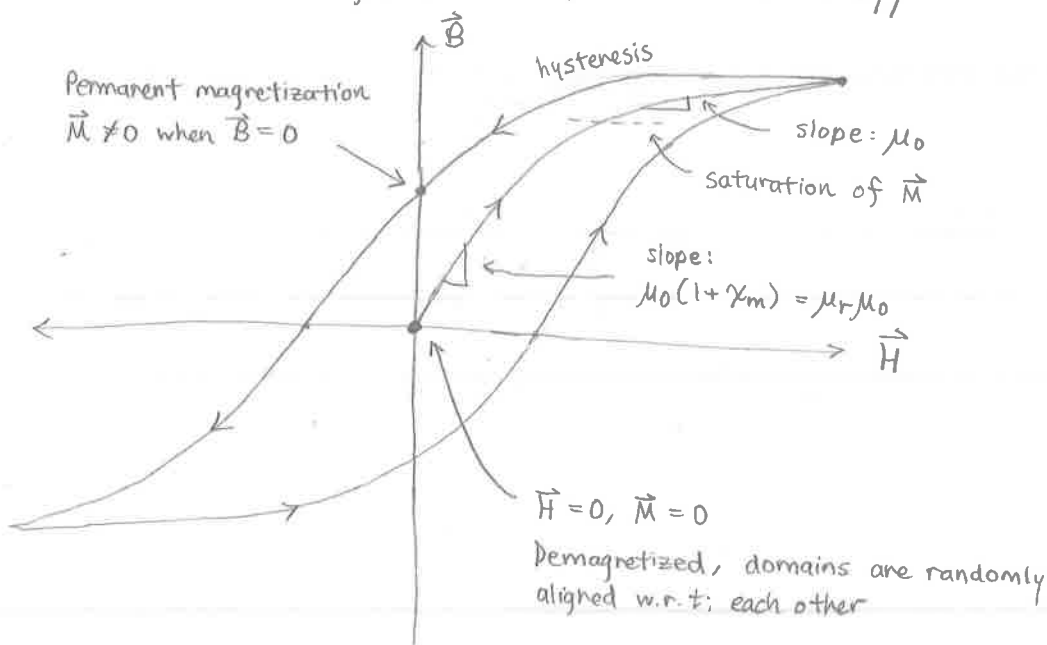 B⃗
hystenesis
Permanent magnetization
M⃗ ≠0 when B⃗ = 0
slope: μ₀
saturation of M⃗
slope:
μ₀(1+χₘ) = μᵣμ₀
H⃗
H⃗ = 0, M⃗ = 0
Demagnetized, domains are randomly
aligned w.r.t. each other